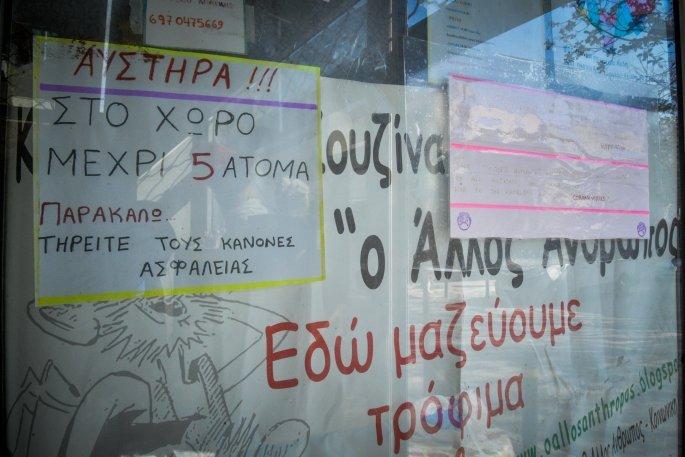 6970475669
ΑΥΣΤΗΡΑ !!!
ΣΤΟ ΧΩΡΟ
ΜΕΧΡΙ 5 ΑΤΟΜΑ
ΠΑΡΑΚΑΛΩ...
ΤΗΡΕΙΤΕ ΤΟΥΣ ΚΑΝΟΝΕΣ
ΑΣΦΑΛΕΙΑΣ
Κ ουζίνα
"ο Άλλος Άνθρωπος
Εδώ μαζεύουμε
τρόφιμα
oallosanthropos.blogspo
Άλλος Άνθρωπος - Κοινωνικη